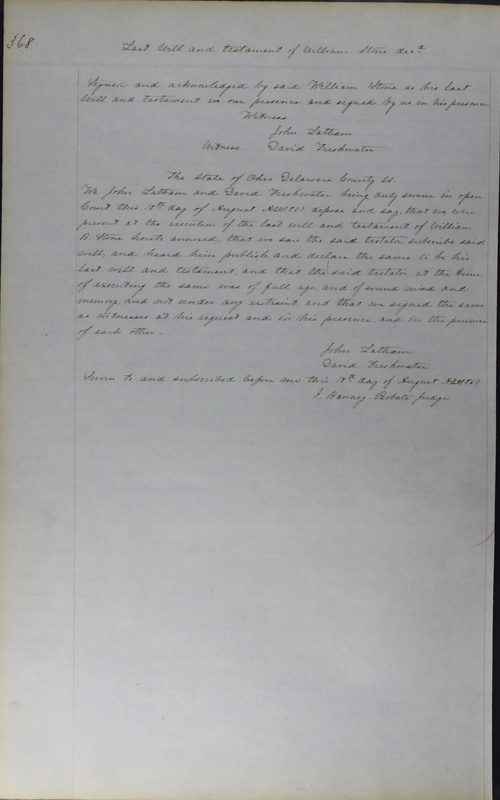 368
Last Will and testament of William Stone decd
Signed and acknowledged by said William Stone as his last
Will and testament in our presence and signed by us in his presence
Witness
John Latham
Witness David Freshwater
The State of Ohio Delaware County SS.
We John Latham and David Freshwater being duly sworn in open
Court this 18th day of August AD depose and say, that we were
present at the execution of the last will and testament of William
B. Stone hereto annexed, that we saw the said testator subscribe said
will, and heard him publish and declare the same to be his
last will and testament, and that the said testator at the time
of executing the same was of full age, and of sound mind and
memory and not under any restraint, and that we signed the same
as witnesses at his request and in his presence, and in the presence
of each other.
John Latham
David Freshwater
Sworn to and subscribed before me this 18th day of August AD
Probate judge